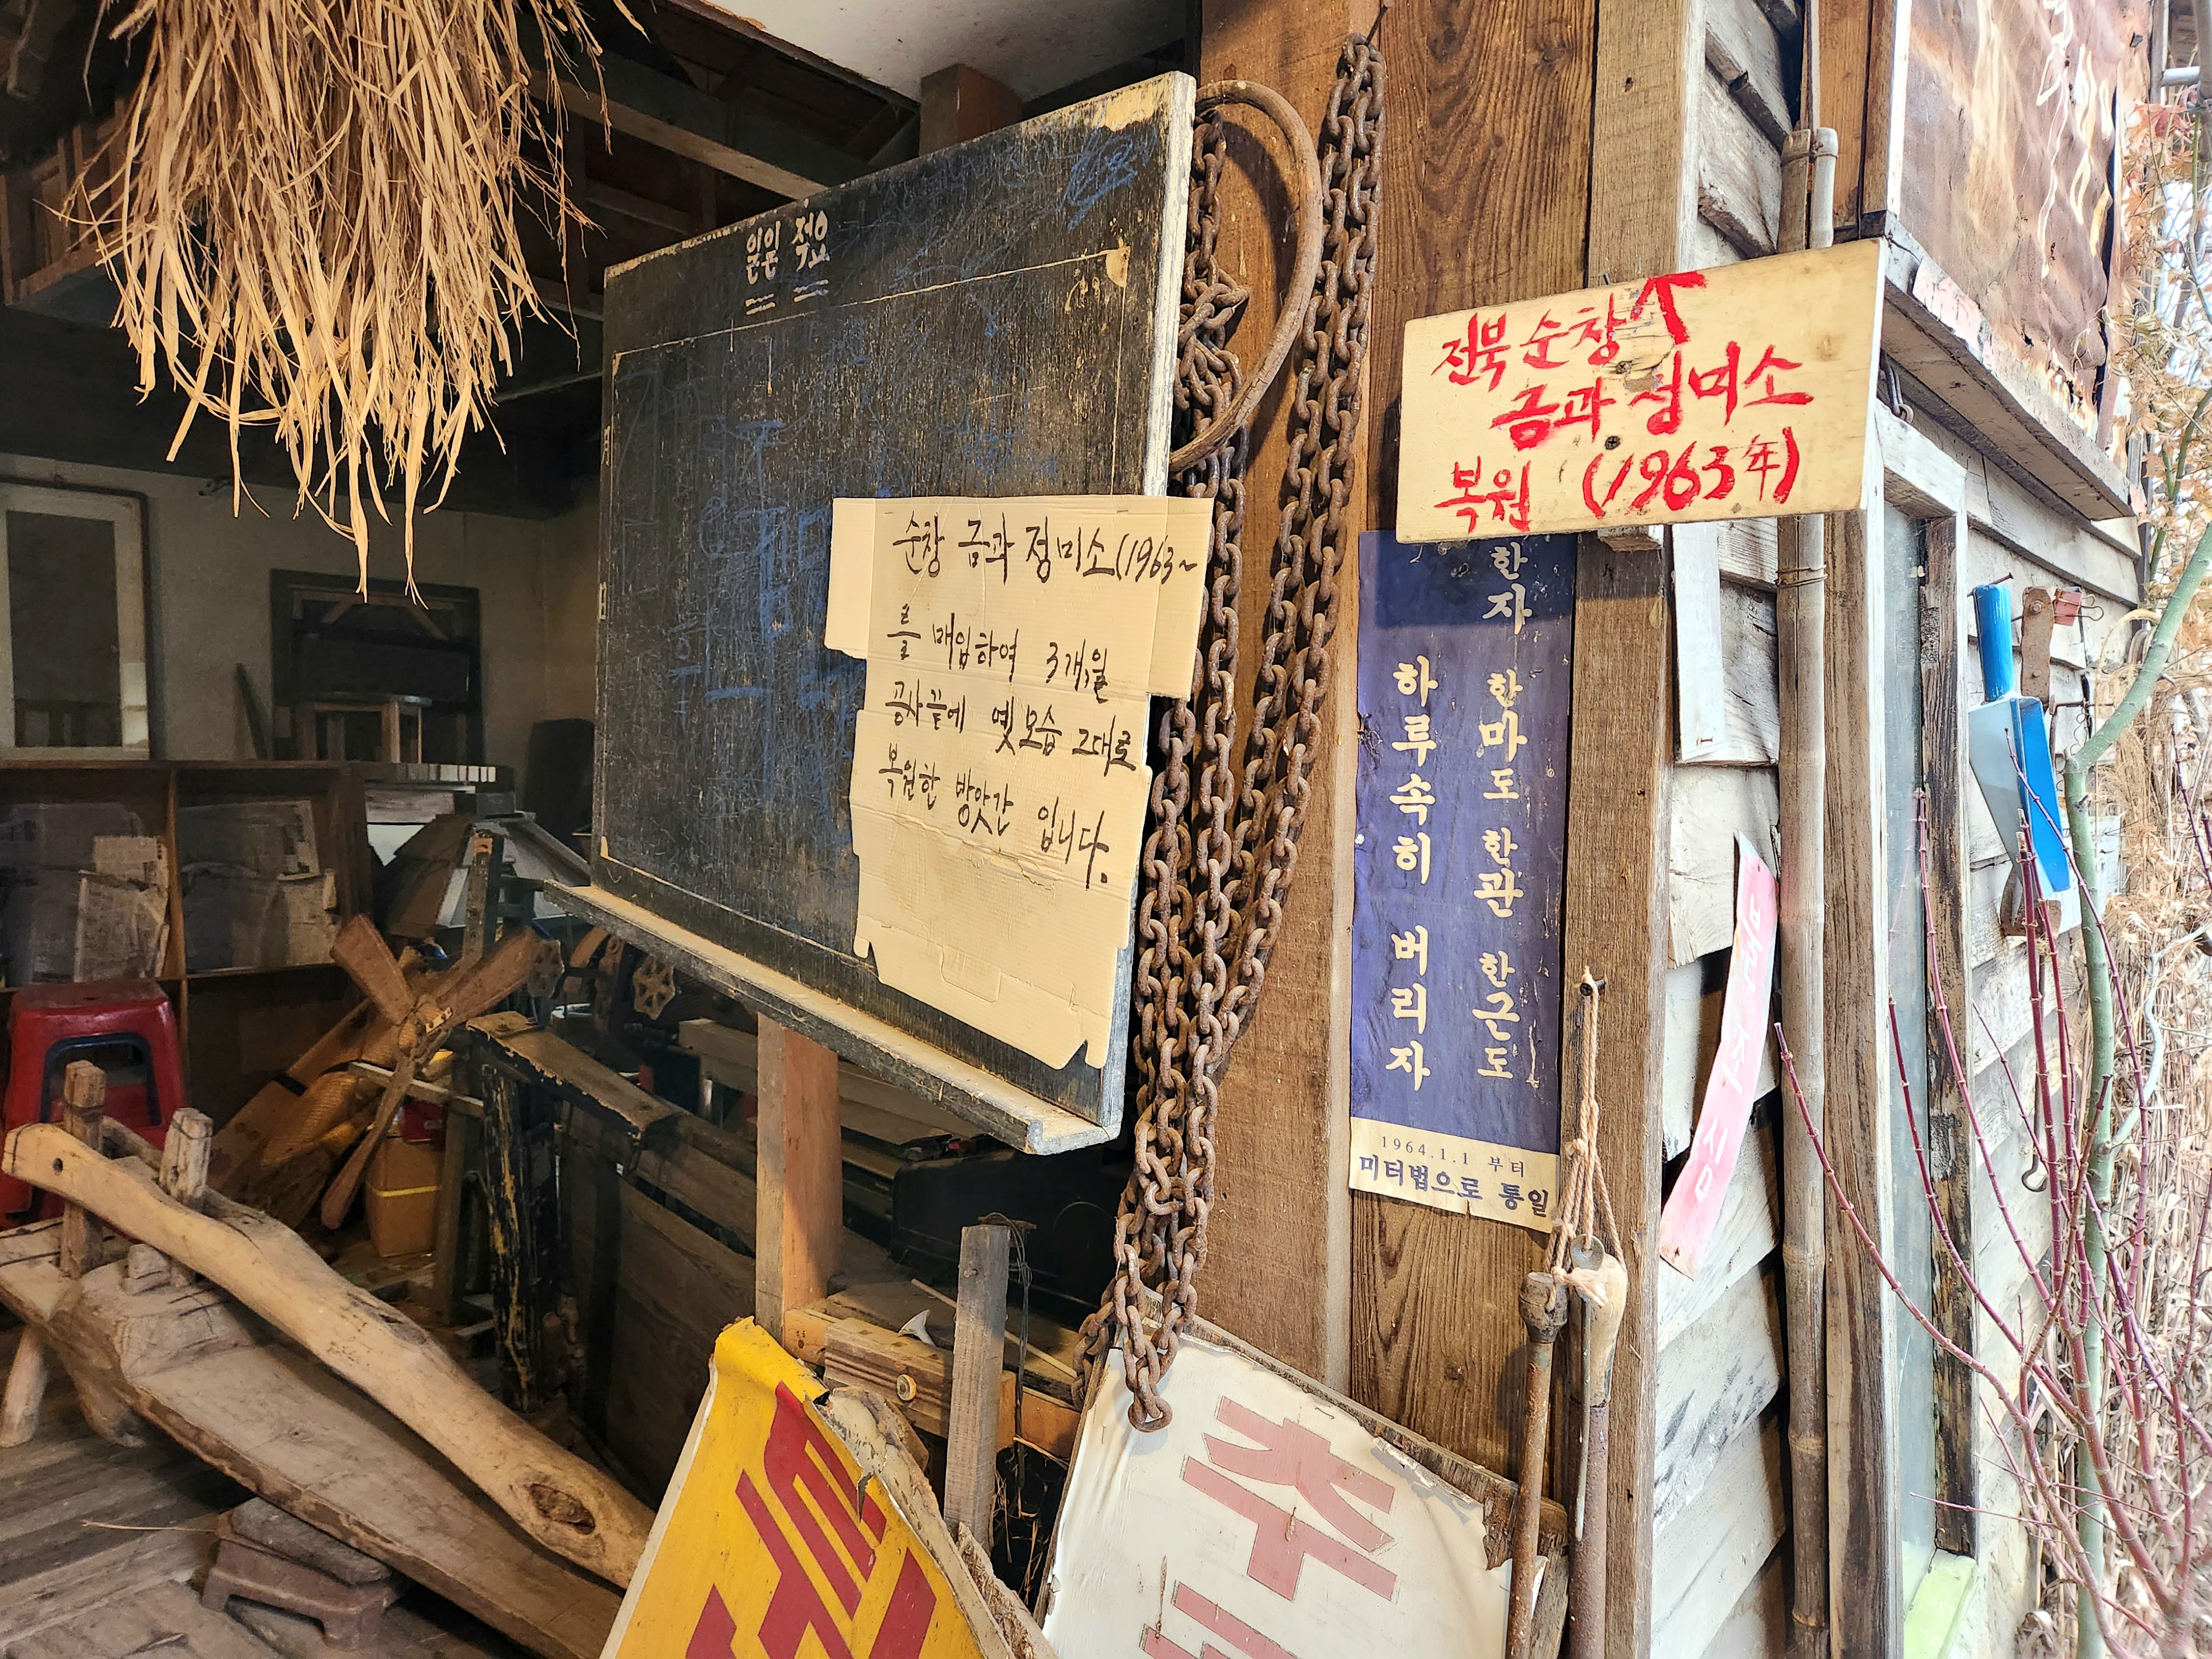 일일 적요
순창 금과 정미소(1963~
를 매입하여 3개월
공사끝에 옛모습 그대로
복원한 방앗간 입니다.
전북 순창
금과 정미소
복원 (1963年)
한자 한마도 한관 한근도
하루속히 버리자
1964.1.1 부터
미터법으로 통일
주